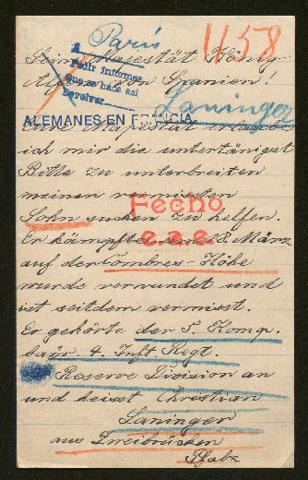 Paris
1158
Seine Majestät König
Alfons von Spanien!
Pedir informes
que se hace así
devolver
Laninger
ALEMANES EN FRANCIA
Eure Majestät erlaube
ich mir die untertänigst
Bitte zu unterbreiten
meinen vermissten
Sohn suchen zu helfen.
Fecho
e.a.e.
Er kämpfte am 18. März
auf der Combres-Höhe
wurde verwundet und
ist seitdem vermisst.
Er gehörte der 5. Komp.
bayr. 4. Inft Regt.
Reserve Division an
und heisst Christian
Laninger
aus Zweibrücken
Pfalz